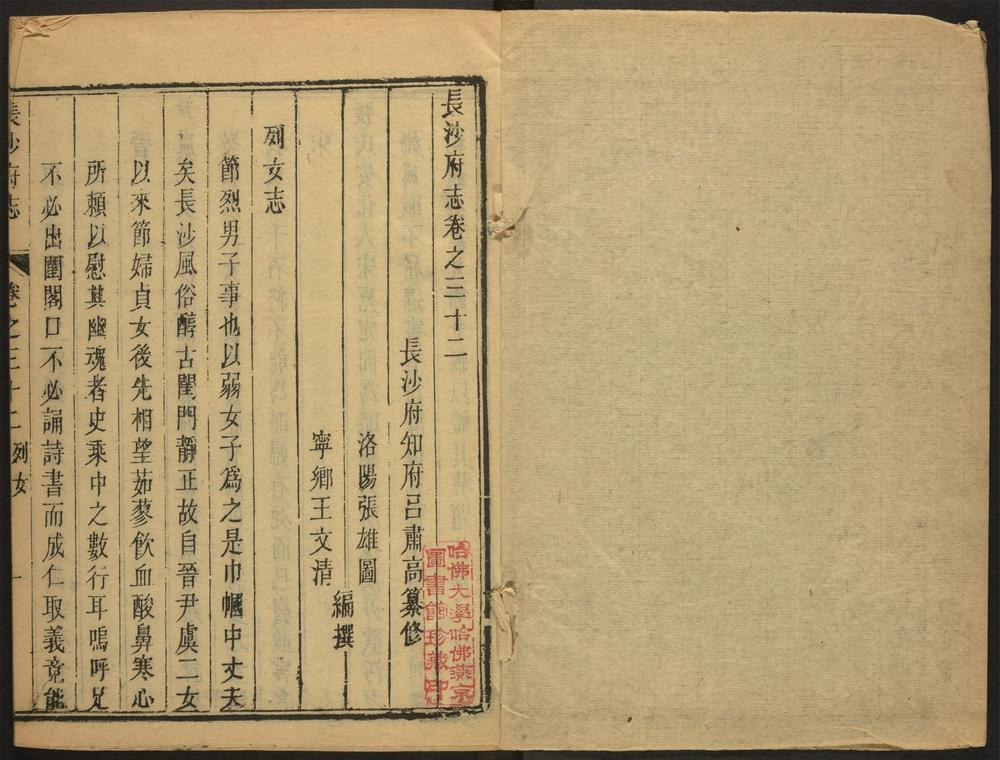 長沙府志卷之三十二
長沙府知府呂肅高纂修
洛陽張雄圖
寧鄉王文清
編撰
列女志
節烈男子事也以弱女子爲之是巾幗中丈夫
矣長沙風俗醇古閨門靜正故自晉尹虞二女
以來節婦貞女後先相望茹蓼飲血酸鼻寒心
所頼以慰其幽魂者史乘中之數行耳嗚呼足
不必出閨閣口不必誦詩書而成仁取義竟能
長沙府志 卷之三十二 列女 一
哈佛大學哈佛燕京
圖書館珍藏印